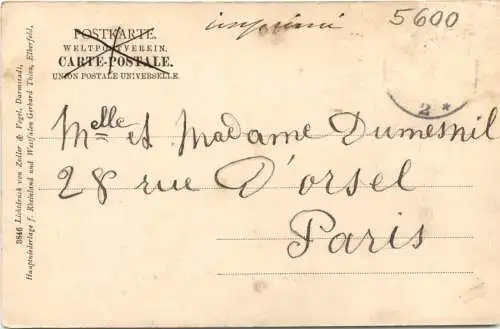 imprimé
5600
POSTKARTE.
WELTPOSTVEREIN.
CARTE-POSTALE.
UNION POSTALE UNIVERSELLE.
2 *
Melle et Madame Dumesnil
28 rue D'orsel
Paris
3846 Lichtdruck von Zedler & Vogel, Darmstadt,
Hauptniederlage f. Rheinland und Westfalen Gerhard Thien, Elberfeld,